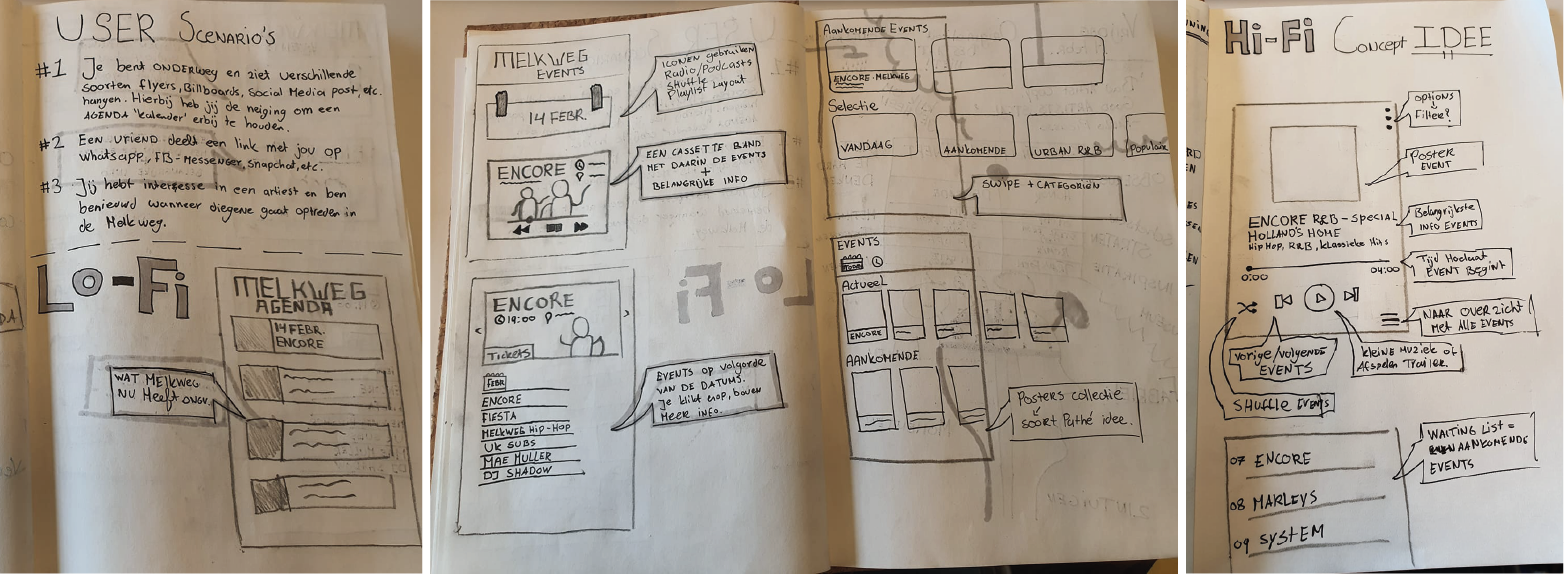 USER Scenario's
#1 Je bent ONDERweg en ziet verschillende
soorten flyers, Billboards, Social Media post, etc.
hangen. Hierbij heb jij de neiging om een
AGENDA 'kalender' erbij te houden.
#2 EEN VRIEND deelt een link met jou op
Whatsapp, FB-Messenger, snapchat, etc.
#3 Jij hebt interesse in een artiest en ben
benieuwd wanneer diegene gaat optreden in
de Melkweg.
Lo-Fi
MELKWEG
AGENDA
14 FEBR.
ENCORE
WAT Melkweg
NU Heeft ongv.
MELKWEG
EVENTS
14 FEBR.
ICONEN gebruiken
Radio/Podcasts
Shuffle
Playlist Layout
ENCORE
EEN CASSETTE BAND
MET DAARIN DE EVENTS
+
BELANGRIJKE INFO
ENCORE
19:00
Tickets
FEBR
ENCORE
FIESTA
MELKWEG HIP-HOP
UK SUBS
MAE MULLER
DJ SHADOW
EVENTS op volgorde
VAN DE DATUMS.
Je klikt erop, boven
MEER INFO.
AANKOMENDE EVENTS
ENCORE-MELKWEG
Selectie
VANDAAG
AANKOMENDE
URBAN R&B
Populair
SWIPE + CATEGORIËN
EVENTS
Actueel
ENCORE
AANKOMENDE
Posters collectie
soort Pathé idee.
Hi-Fi Concept IDEE
OPTIONS
Filter?
Poster
EVENT
ENCORE R&B-SPECIAL
HOLLAND'S HOME
Hip Hop, R&B, klassieke Hits
Belangrijkste
INFO EVENTS
0:00
04:00
Tijd Hoelaat
EVENT Begint
NAAR OVERZICHT
Met ALLE EVENTS
Vorige/volgende
EVENTS
kleine muziek of
Afspelen Trailer.
SHuffle EVENTS
WAITING LIST =
AANKOMENDE
EVENTS
07 ENCORE
08 MARLEYS
09 SYSTEM